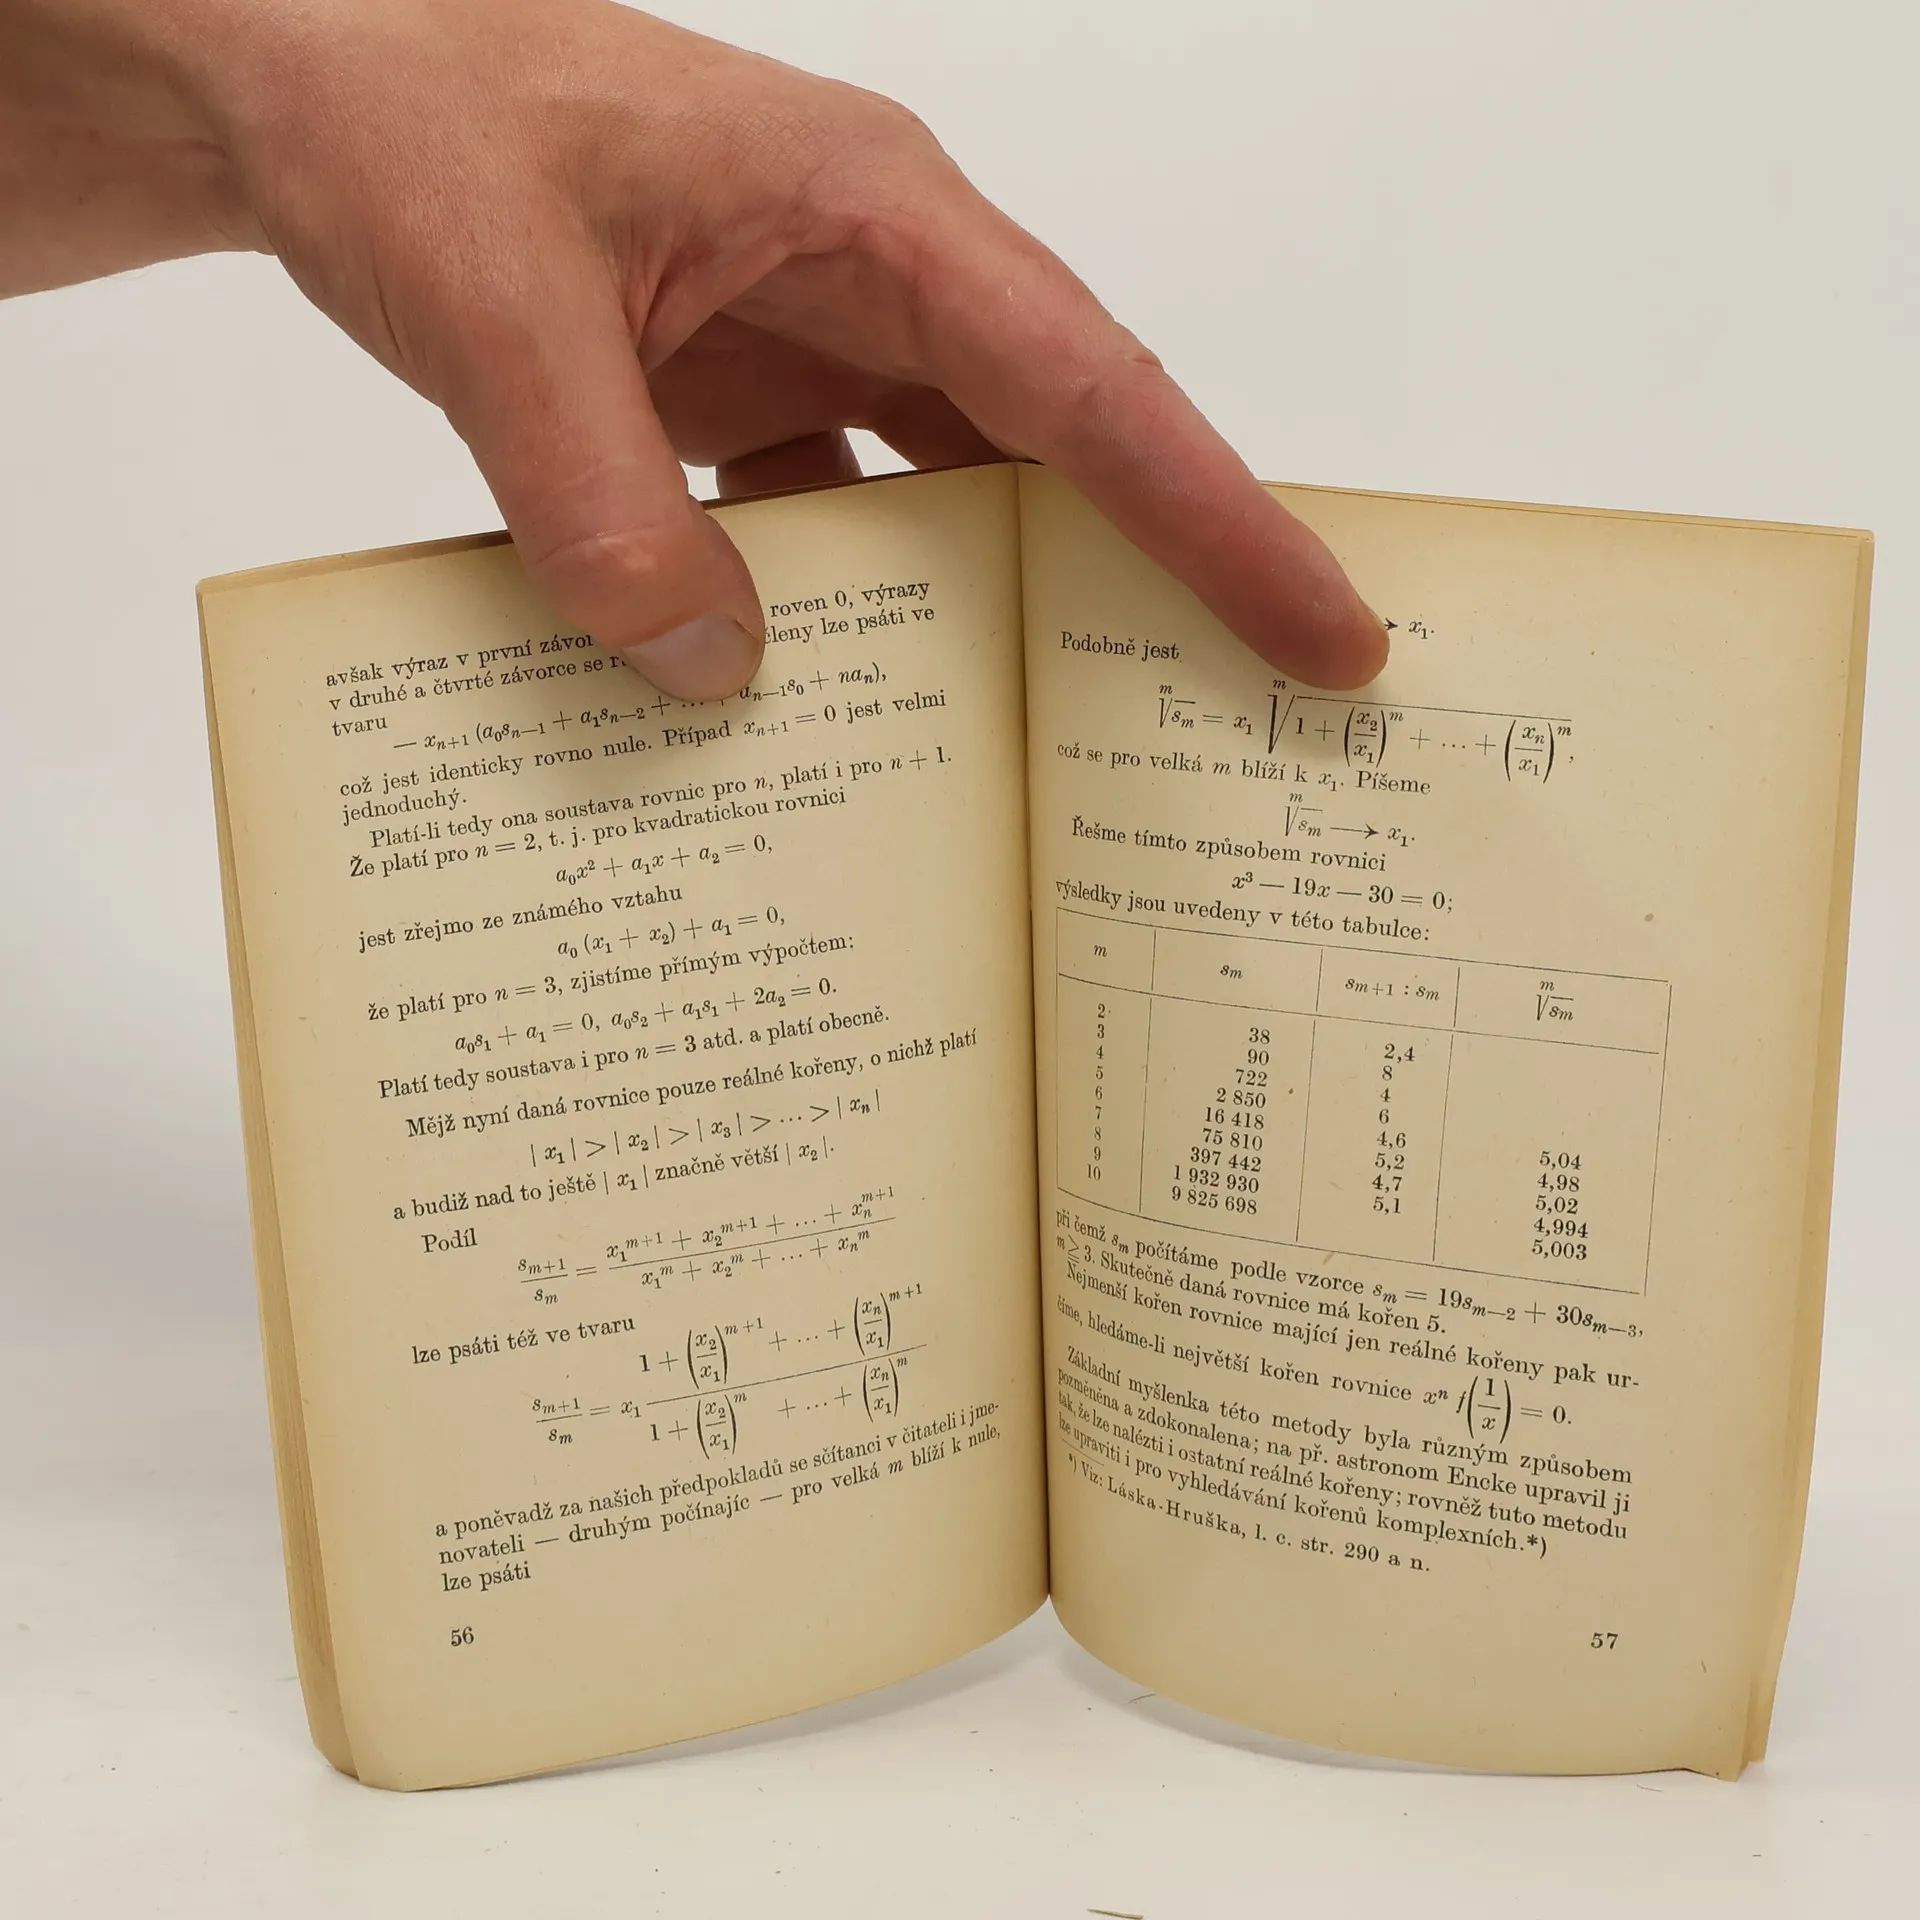 avšak výraz v první závor roven 0, výrazy
v druhé a čtvrté závorce se členy lze psáti ve
tvaru
— xₙ₊₁ (a₀sₙ₋₁ + a₁sₙ₋₂ + ... + aₙ₋₁s₀ + naₙ),
což jest identicky rovno nule. Případ xₙ₊₁ = 0 jest velmi
jednoduchý.
Platí-li tedy ona soustava rovnic pro n, platí i pro n + 1.
Že platí pro n = 2, t. j. pro kvadratickou rovnici
a₀x² + a₁x + a₂ = 0,
jest zřejmo ze známého vztahu
a₀ (x₁ + x₂) + a₁ = 0,
že platí pro n = 3, zjistíme přímým výpočtem:
a₀s₁ + a₁ = 0, a₀s₂ + a₁s₁ + 2a₂ = 0.
Platí tedy soustava i pro n = 3 atd. a platí obecně.
Mějž nyní daná rovnice pouze reálné kořeny, o nichž platí
| x₁ | > | x₂ | > | x₃ | > ... > | xₙ |
a budiž nad to ještě | x₁ | značně větší | x₂ |.
Podíl
sₘ₊₁/sₘ = (x₁^{m+1} + x₂^{m+1} + ... + xₙ^{m+1})/(x₁^m + x₂^m + ... + xₙ^m)
lze psáti též ve tvaru
sₘ₊₁/sₘ = x₁ (1 + (x₂/x₁)^{m+1} + ... + (xₙ/x₁)^{m+1})/(1 + (x₂/x₁)^m + ... + (xₙ/x₁)^m)
a poněvadž za našich předpokladů se sčítanci v čitateli i jme-
novateli — druhým počínajíc — pro velká m blíží k nule,
lze psáti
56
→ x₁.
Podobně jest
ᵐ√sₘ = x₁ ᵐ√(1 + (x₂/x₁)^m + ... + (xₙ/x₁)^m),
což se pro velká m blíží k x₁. Píšeme
ᵐ√sₘ → x₁.
Řešme tímto způsobem rovnici
x³ — 19x — 30 = 0;
výsledky jsou uvedeny v této tabulce:
m sₘ sₘ₊₁ : sₘ ᵐ√sₘ
2 38 2,4
3 90 8
4 722 4
5 2 850 6
6 16 418 4,6 5,04
7 75 810 5,2 4,98
8 397 442 4,7 5,02
9 1 932 930 5,1 4,994
10 9 825 698 5,003
při čemž sₘ počítáme podle vzorce sₘ = 19sₘ₋₂ + 30sₘ₋₃,
m ≧ 3. Skutečně daná rovnice má kořen 5.
Nejmenší kořen rovnice mající jen reálné kořeny pak ur-
číme, hledáme-li největší kořen rovnice xⁿ f(1/x) = 0.
Základní myšlenka této metody byla různým způsobem
pozměněna a zdokonalena; na př. astronom Encke upravil ji
tak, že lze nalézti i ostatní reálné kořeny; rovněž tuto metodu
lze upraviti i pro vyhledávání kořenů komplexních.*)
*) Viz: Láska-Hruška, l. c. str. 290 a n.
57